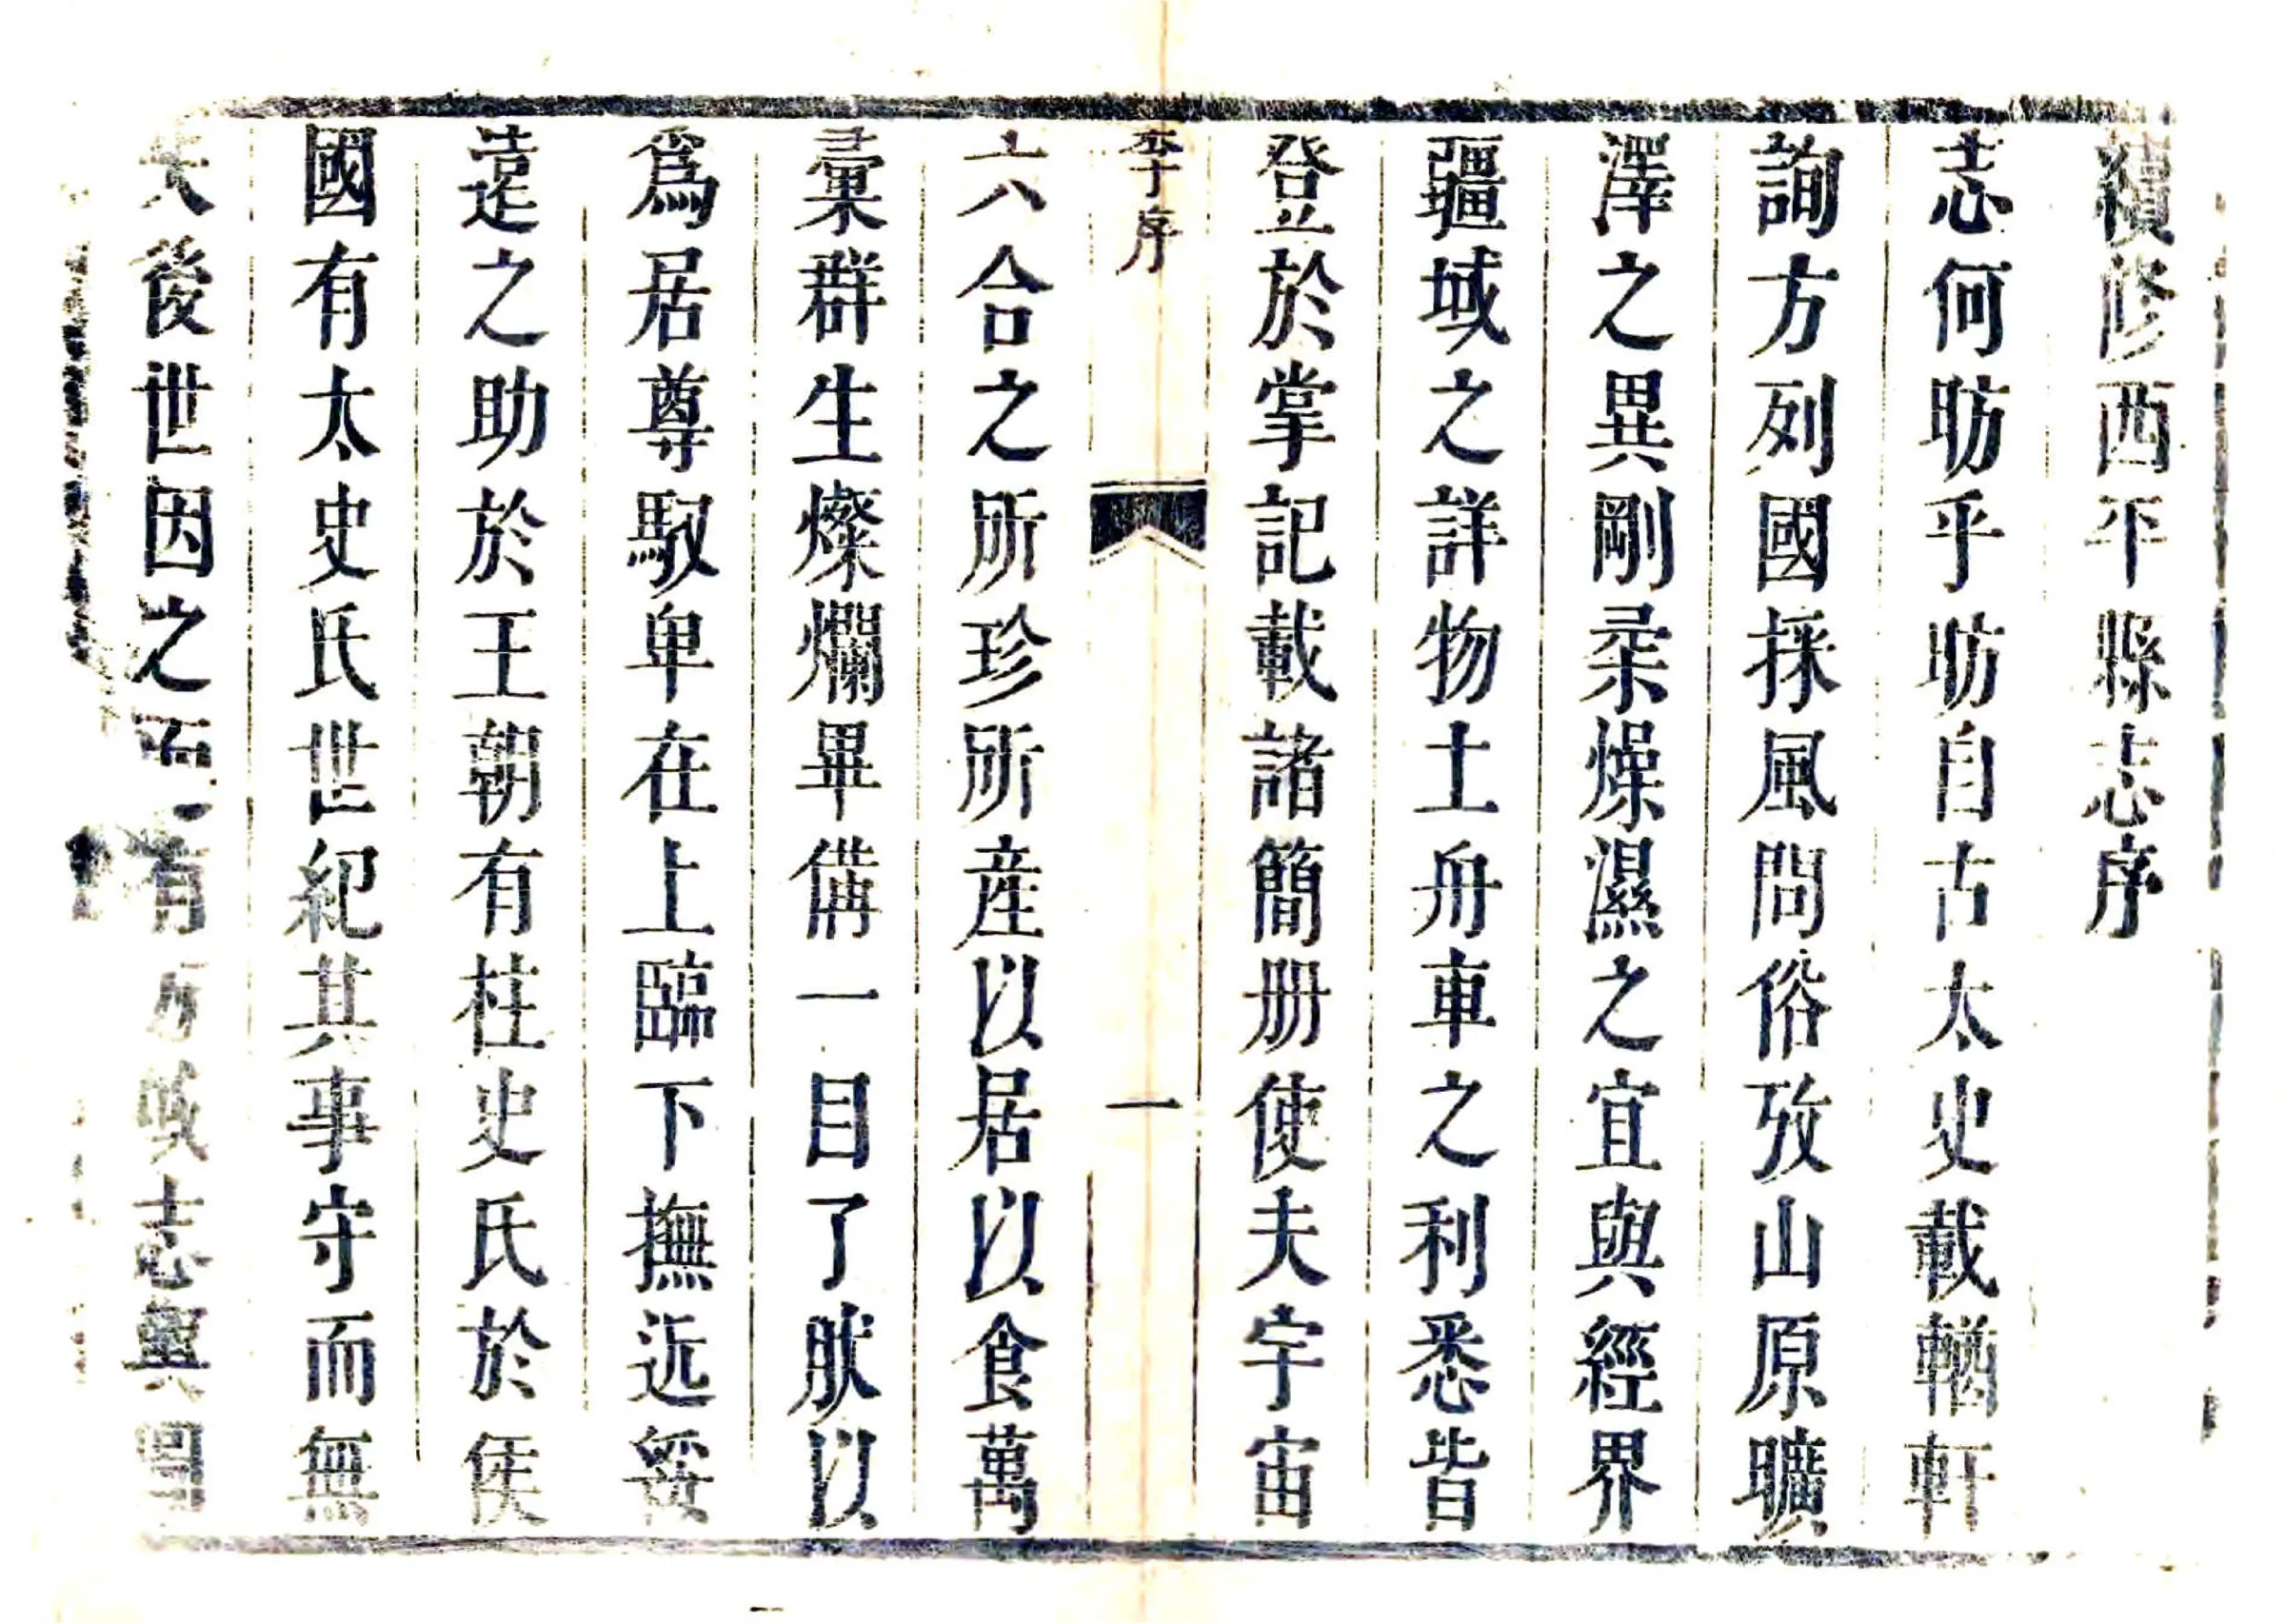 續修西平縣志序
志何昉乎昉自古太史載輶軒
詢方列國採風問俗攷山原曠
澤之異剛柔燥濕之宜與經界
疆域之詳物土舟車之利悉皆
登於掌記載諸簡册使夫宇宙
李序
一
六合之所珍所産以居以食萬
彙群生燦爛畢備一目了然以
爲居尊馭卑在上臨下撫近綏
遠之助於王朝有柱史氏於侯
國有太史氏世紀其事守而無
失後世因之而有方域志輿圖